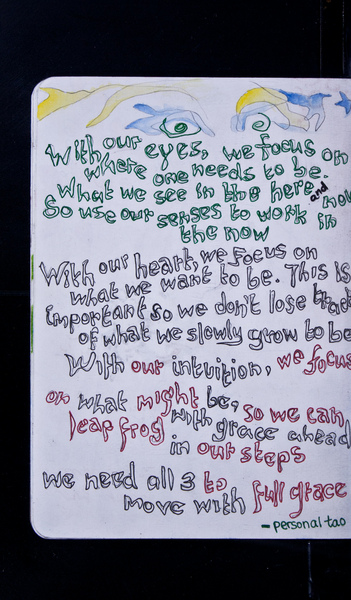 With our eyes, we focus on
where one needs to be.
What we see in the here and now
So use our senses to work in
the now
With our heart, we focus on
what we want to be. This is
important so we don't lose track
of what we slowly grow to be
With our intuition, we focus
on what might be, so we can
leap frog with grace ahead
in our steps
we need all 3 to
move with full grace
- personal tao